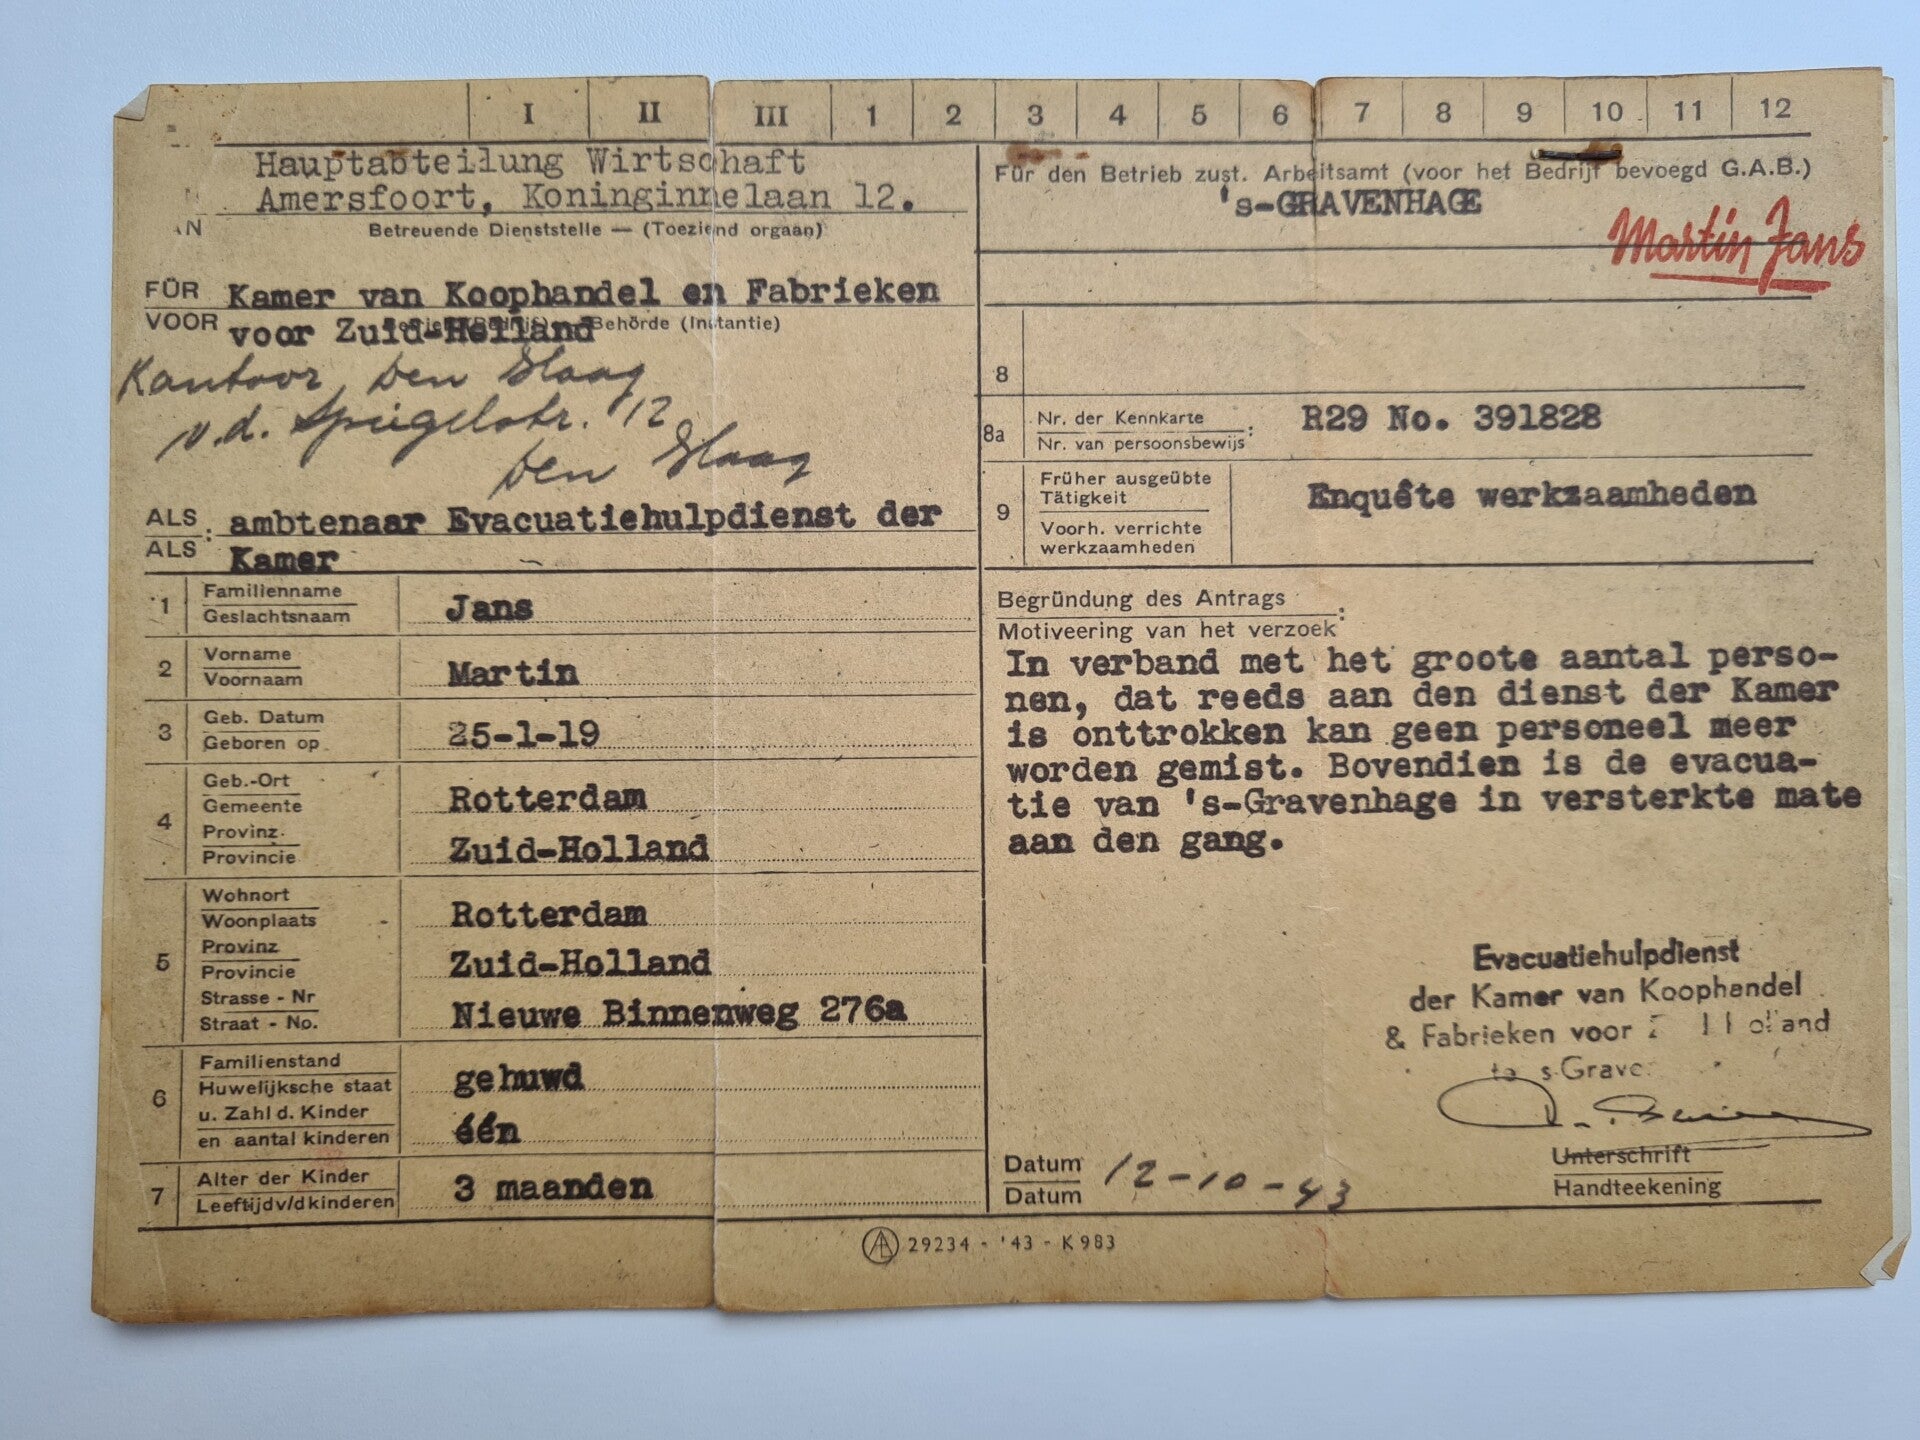 I II III 1 2 3 4 5 6 7 8 9 10 11 12
Hauptabteilung Wirtschaft
Amersfoort, Koninginnelaan 12.
AN
Betreuende Dienststelle — (Toeziend orgaan)
FÜR
VOOR
Kamer van Koophandel en Fabrieken
voor Zuid-Holland
Behörde (Instantie)
Kantoor Den Haag
v.d. Spiegelstr. 12
Den Haag
ALS
ALS :
ambtenaar Evacuatiehulpdienst der
Kamer
1 Familienname
Geslachtsnaam
Jans
2 Vorname
Voornaam
Martin
3 Geb. Datum
Geboren op
25-1-19
4 Geb.-Ort
Gemeente
Rotterdam
Provinz
Provincie
Zuid-Holland
5 Wohnort
Woonplaats
Rotterdam
Provinz
Provincie
Zuid-Holland
Strasse - Nr
Straat - No.
Nieuwe Binnenweg 276a
6 Familienstand
Huwelijksche staat
gehuwd
u. Zahl d. Kinder
en aantal kinderen
één
7 Alter der Kinder
Leeftijdv/dkinderen
3 maanden
Für den Betrieb zust. Arbeitsamt (voor het Bedrijf bevoegd G.A.B.)
's-GRAVENHAGE
Martin Jans
8
8a Nr. der Kennkarte
Nr. van persoonsbewijs :
R29 No. 391828
9 Früher ausgeübte
Tätigkeit
Voorh. verrichte
werkzaamheden
Enquête werkzaamheden
Begründung des Antrags
Motiveering van het verzoek :
In verband met het groote aantal perso-
nen, dat reeds aan den dienst der Kamer
is onttrokken kan geen personeel meer
worden gemist. Bovendien is de evacua-
tie van 's-Gravenhage in versterkte mate
aan den gang.
Evacuatiehulpdienst
der Kamer van Koophandel
& Fabrieken voor
Datum
Datum
12-10-43
Unterschrift
Handteekening
29234 - '43 - K 983